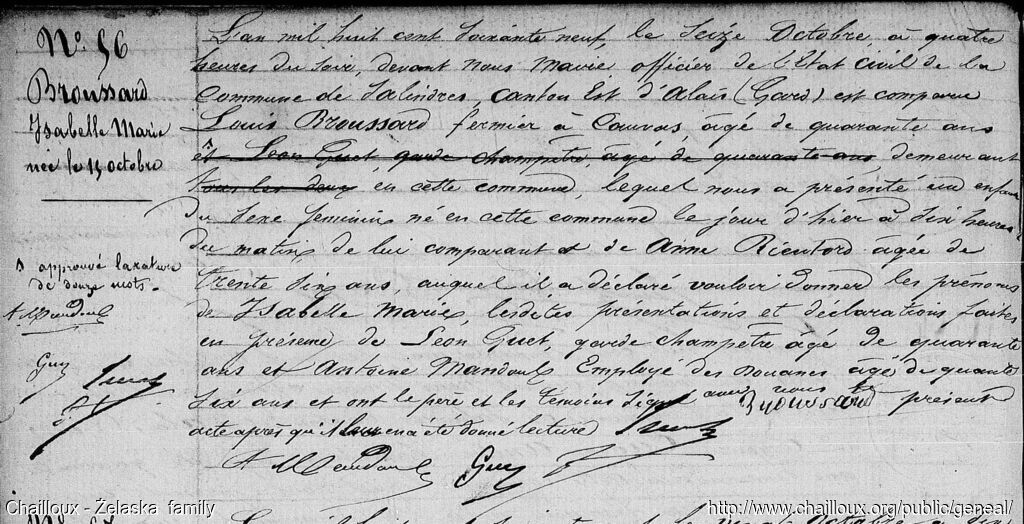 N° 56
Broussard
Isabelle Marie
née le 15 octobre
approuvé la rature
de douze mots.
A Mandoul
Guy
L'an mil huit cent soixante neuf, le seize Octobre à quatre
heures du soir, devant nous maire officier de l'Etat civil de la
Commune de Salindres, canton Est d'Alais (Gard) est comparu
Louis Broussard fermier à Cauvas, âgé de quarante ans
et Léon Guet garde champêtre, âgé de quarante ans demeurant
tous les deux en cette commune, lequel nous a présenté un enfant
du sexe féminin né en cette commune le jour d'hier à six heures
du matin de lui comparant & de Anne Rieutord âgée de
trente six ans, auquel il a déclaré vouloir donner les prénoms
de Isabelle Marie, lesdites présentations et déclarations faites
en présence de Léon Guet, garde champêtre âgé de quarante
ans et Antoine Mandoul Employé des Douanes âgé de quarante
six ans et ont le père et les témoins signé avec nous le présent
Broussard
acte après qu'il leur en a été donné lecture
A Mandoul Guy
Chailloux - Żelaska family
http://www.chailloux.org/public/geneal/